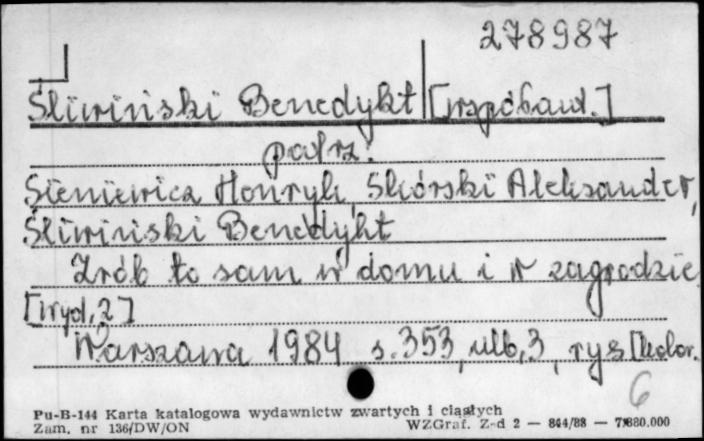 278987
Śliwiński Benedykt [współaut.]
patrz:
Sieniewicz Henryk, Skórski Aleksander,
Śliwiński Benedykt
Zrób to sam w domu i w zagrodzie
[wyd. 2]
Warszawa 1984 s. 353, nlb, 3, rys [kolor.
6
Pu-B-144 Karta katalogowa wydawnictw zwartych i ciągłych
Zam. nr 136/DW/ON WZGraf. Z-d 2 — 844/88 —